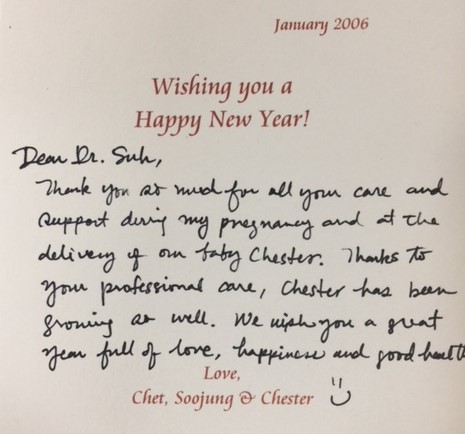 January 2006
Wishing you a
Happy New Year!
Dear Dr. Suh,
Thank you so much for all your care and
support during my pregnancy and at the
delivery of our baby Chester. Thanks to
your professional care, Chester has been
growing so well. We wish you a great
year full of love, happiness and good health
Love,
Chet, Soojung & Chester